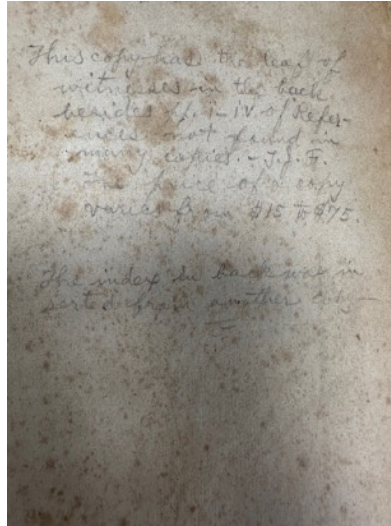 This copy has the leaf of
witnesses in the back
besides pp. i-iv of Refer-
ences not found in
many copies. - J.J.F.
The price of a copy
varies from $15 to $75.
The index in back was in
serted from another copy -